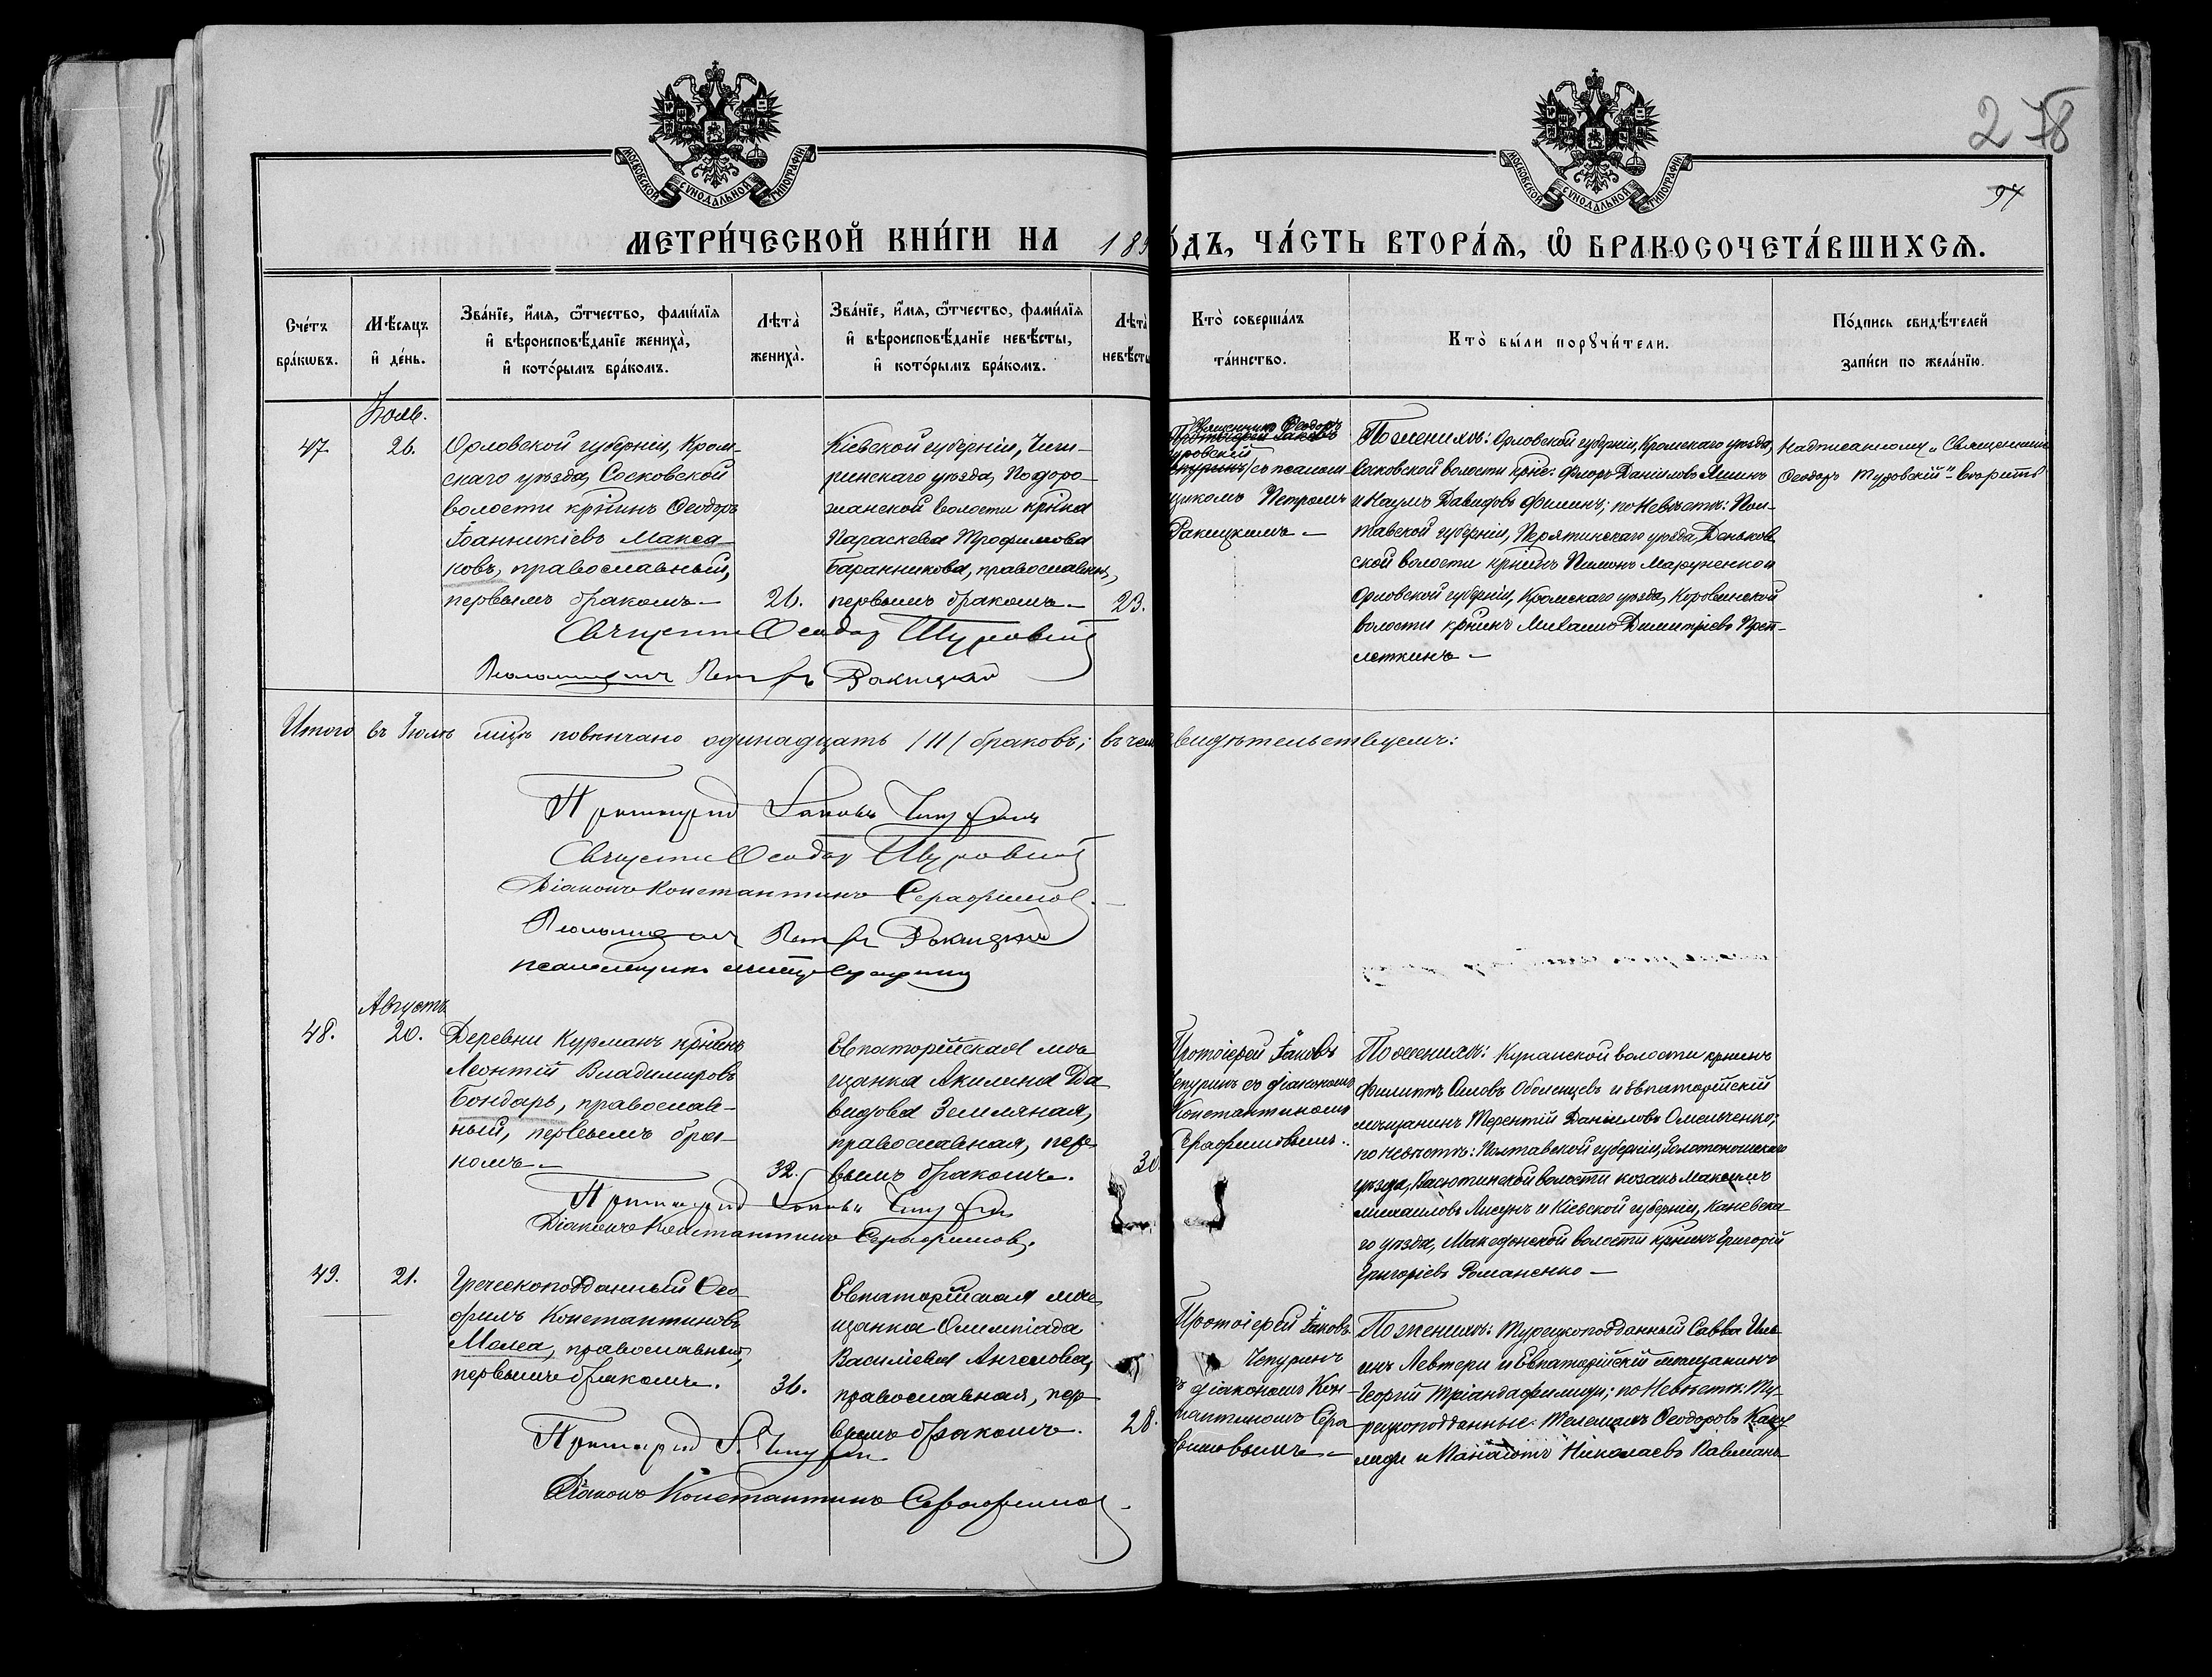 МОСКОВСКОЙ СѴНОДАЛЬНОЙ ТИПОГРАФІИ
МОСКОВСКОЙ СѴНОДАЛЬНОЙ ТИПОГРАФІИ
278
97
МЕТРИ́ЧЕСКОЙ КНИ́ГИ НА 189
О́ДЪ, ЧА́СТЬ ВТОРА́Я, Ѡ БРАКОСОЧЕТА́ВШИХСЯ.
Сче́тъ бра́кѡвъ.
Мѣ́сяцъ и҆ де́нь.
Зва́нїе, и҆́мя, ѻ҆́тчество, фамилїя
и҆ вѣроисповѣ́данїе жениха̀,
и҆ кото́рымъ бра́комъ.
Лѣта̀ жениха̀.
Зва́нїе, и҆́мя, ѻ҆́тчество, фамилїя
и҆ вѣроисповѣ́данїе невѣ́сты,
и҆ кото́рымъ бра́комъ.
Лѣта̀ невѣ́сты
Кто̀ соверша́лъ
та́инство.
Кто̀ бы́ли порꙋчи́тели.
По́дпись свидѣ́телей
за́писи по жела́нїю.
Іюль.
47
26.
Орловской губерніи, Кром-
скаго уѣзда, Сосковской
волости кр҃нинъ Ѳеодоръ
Іоанникіевъ Макса-
ковъ, православный,
первымъ бракомъ.—
26.
Кіевской губерніи, Чиги-
ринскаго уѣзда, Подоро-
жанской волости кр҃нка
Параскева Трофимова
Баранникова, православн.,
первымъ бракомъ.—
23.
Священникъ Ѳеодоръ
Протоіерей Іаковъ
Туровскій
Чепуринъ съ псалом
щикомъ Петромъ
Ракицкимъ.—
По женихѣ: Орловской губерніи, Кромскаго уѣзда,
Сосковской волости кр҃не: Флоръ Даніиловъ Яшинъ
и Наумъ Давидовъ Филинъ; по невѣстѣ: Пол-
тавской губерніи, Пирятинскаго уѣзда, Даньков
ской волости кр҃нинъ Пименъ Марученко и
Орловской губерніи, Кромскаго уѣзда, Коровинской
волости кр҃нинъ Михаилъ Димитріевъ Преп-
леткинъ.—
Надписанному „Священникъ
Ѳеодоръ Туровскій“ вѣрить
Священникъ Ѳеодоръ Туровскій
Псаломщикъ Петръ Ракицкій
Итого въ Іюлѣ мѣсяцѣ повѣнчано одинадцать /11/ браковъ; въ чемъ свидѣтельствуемъ:
Протоіерей Іаковъ Чепуринъ
Священникъ Ѳеодоръ Туровскій
Діаконъ Константинъ Серафимовъ.
Псаломщикъ Петръ Ракицкій
псаломщикъ
Августъ
48.
20.
Деревни Курманъ кр҃нинъ
Леонтій Владимировъ
Бондарь, православ-
ный, первымъ бра-
комъ.—
32.
Евпаторійская мѣ-
щанка Акилина Да-
видова Земляная,
православная, пер-
вымъ бракомъ.
30
Протоіерей Іаковъ
Чепуринъ съ діакономъ
Константиномъ
Серафимовымъ.
По женихѣ: Курманской волости кр҃нинъ
Филиппъ Оболенцевъ и Евпаторійскій
мѣщанинъ Терентій Даніиловъ Омельченко;
по невѣстѣ: Полтавской губерніи, Золотоношскаго
уѣзда, Васютинской волости козакъ Максимъ
Михайловъ Лисунъ и Кіевской губерніи, Каневска-
го уѣзда, Македонской волости кр҃нинъ Григорій
Григоріевъ Романенко.—
Протоіерей Іаковъ Чепуринъ
Діаконъ Константинъ Серафимовъ.
49.
21.
Греческоподданный Ѳео
филъ Константиновъ
Малеа, православный,
первымъ бракомъ.
36.
Евпаторійская мѣ-
щанка Олимпіада
Василіева Ангелова,
православная, пер-
вымъ бракомъ.
28.
Протоіерей Іаковъ
Чепуринъ
съ діакономъ Кон-
стантиномъ Сера
фимовымъ.—
По женихѣ: Турецкоподданный Савва Иль
инъ Левтери и Евпаторійскій мѣщанинъ
Георгій Тріандафилиди; по невѣстѣ: Ту-
рецкоподданные: Телемахъ Ѳеодоровъ
и Панаіотъ Николаевъ
Протоіерей І. Чепуринъ
Діаконъ Константинъ Серафимовъ.